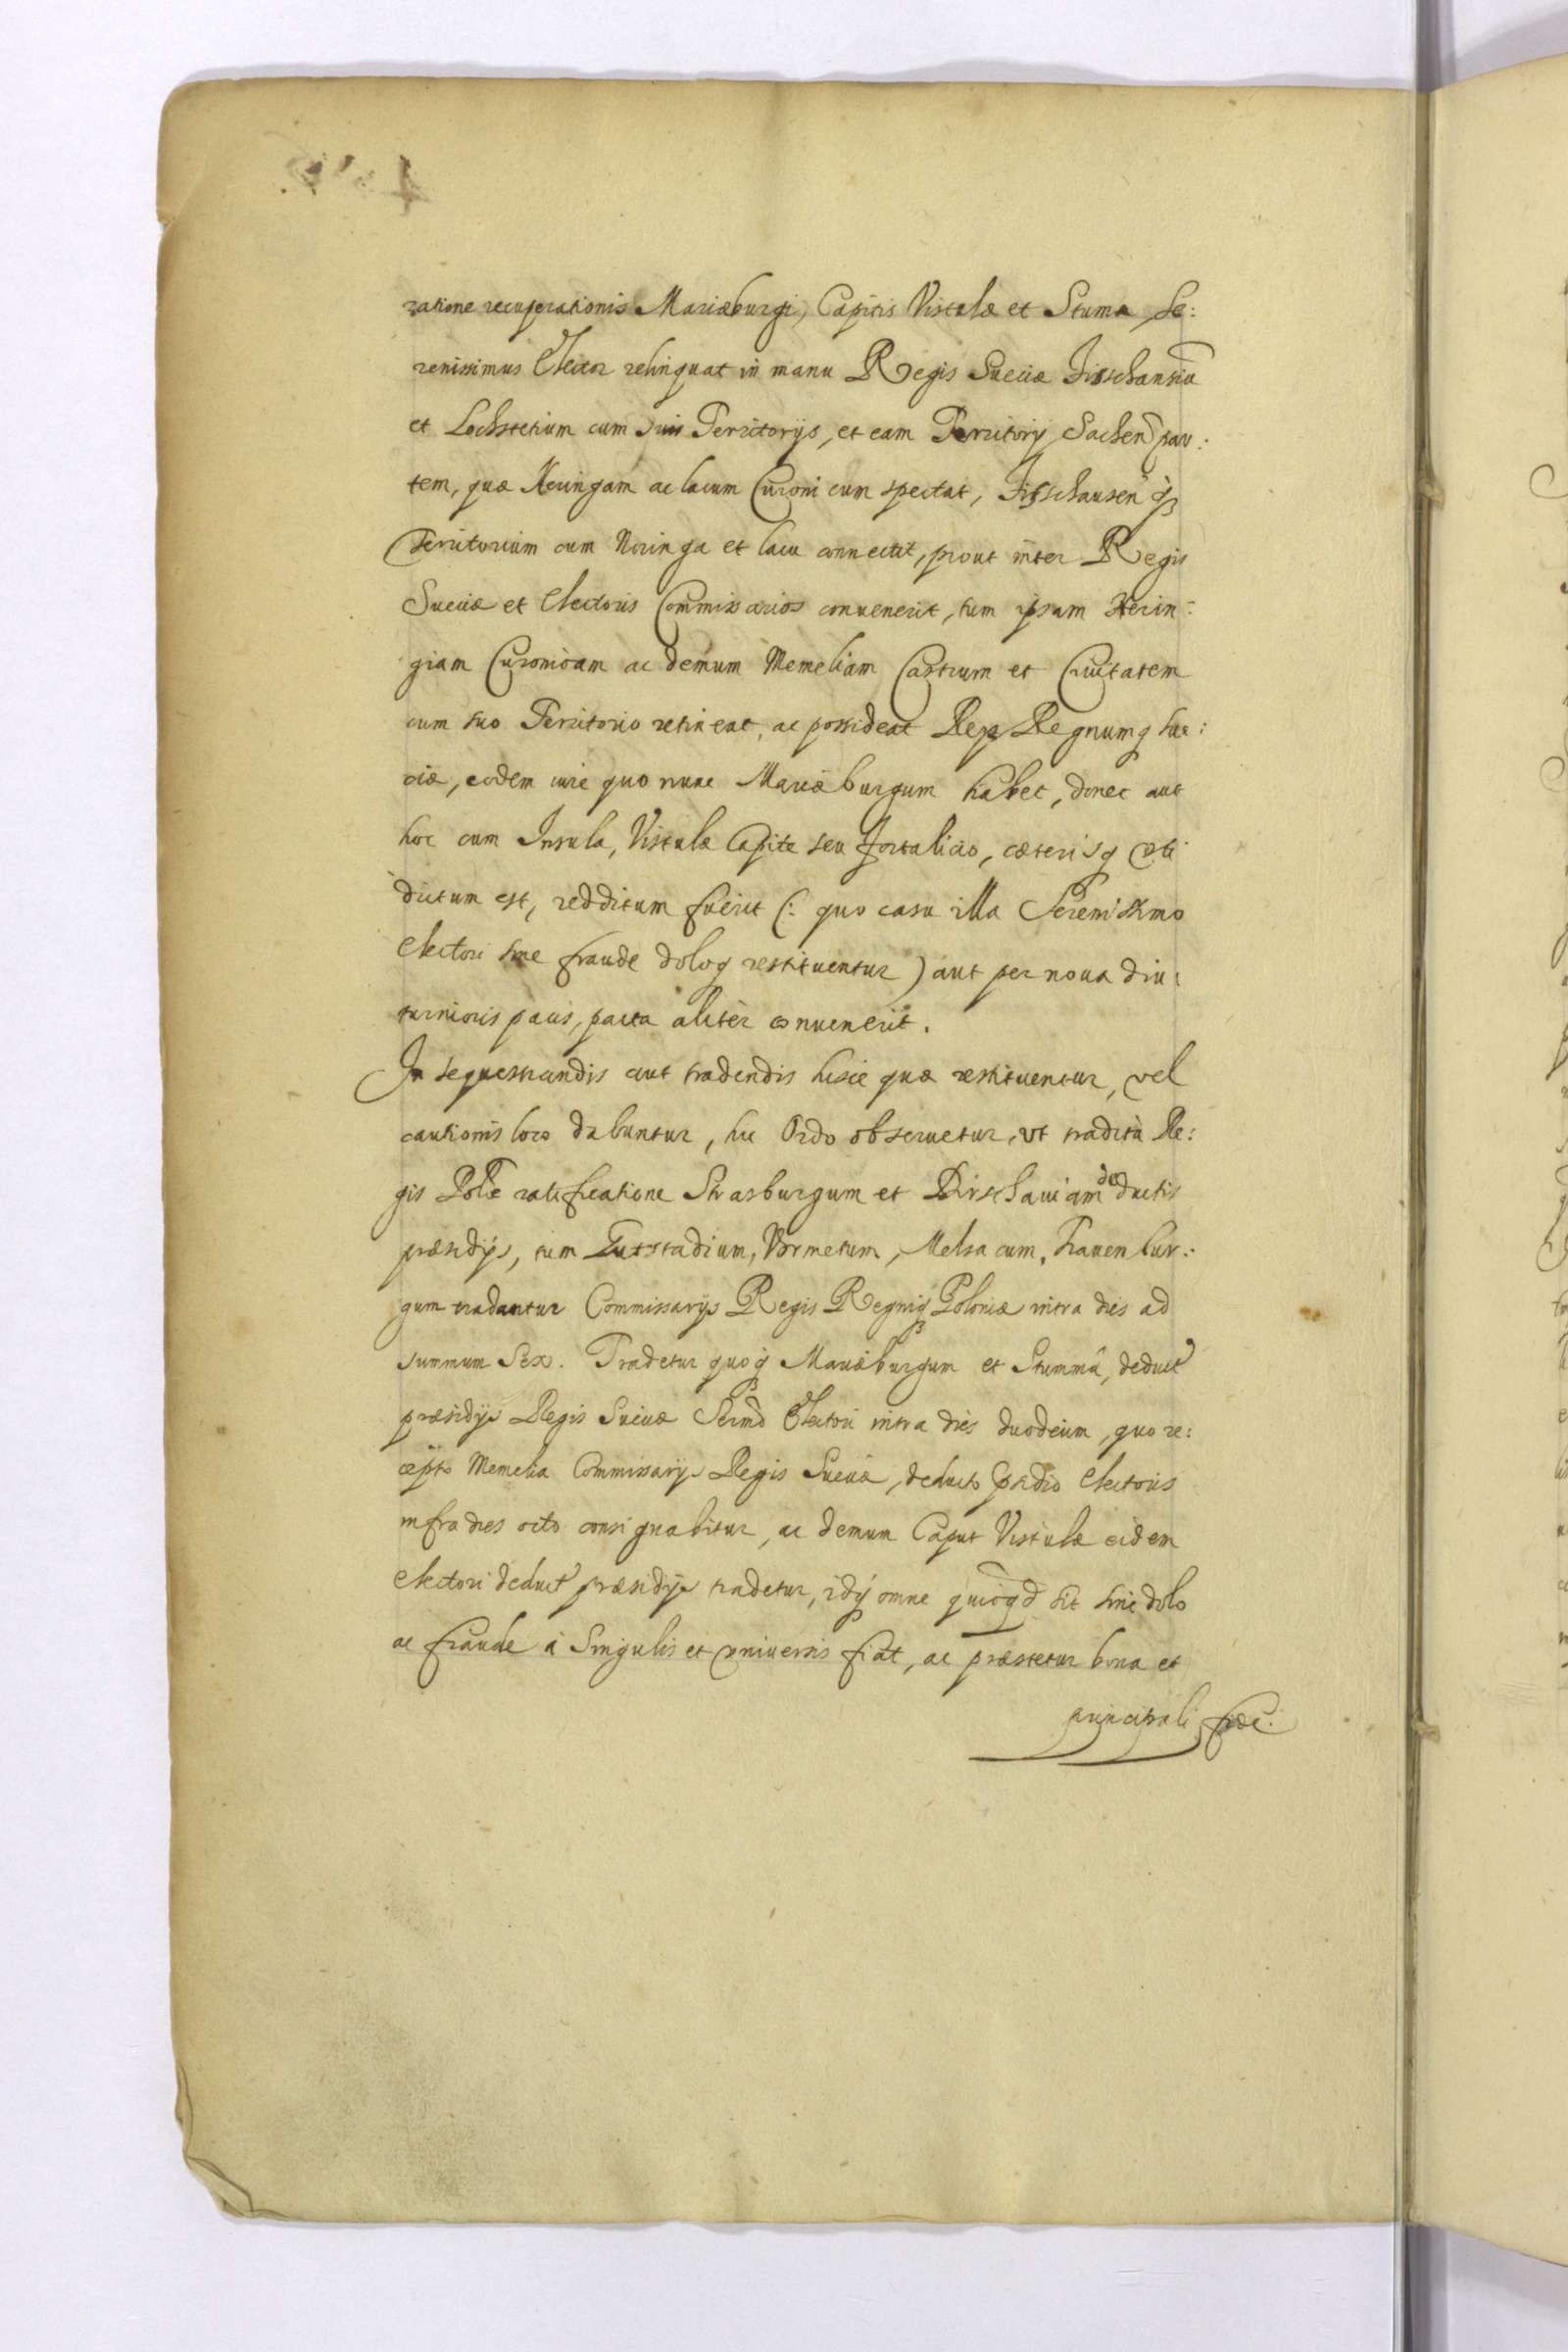 ratione recuperationis Mariæburgi, Capitis Vistulæ et Stuma, Se:
renissimus Elector relinquat in manu Regis Sueciæ Fisschansiũ
et Lochstetium cum suis Territorijs, et eam Territorij Sachen par:
tem, quæ Neringam ac lacum Curoni cum spectat, Fisschausen q̃
Territorium cum Neringa et lacu connectit, prout inter Regis
Sueciæ et Electoris Commissarios convenerit, tum ipsam Nerin:
giam Curonicam ac demum Memeliam Castrum et Civitatem
cum suo Territorio retineat, ac possideat Rex Regnumq Sue:
ciæ, eodem iure quo nunc Mariæburgum habet, donec aut
hoc cum Insula, Vistulæ Capite seu Fortalicio, cæterisq uti
dictum est, redditum fuerit (: quo casu illa Serenissimo
Electori sine fraude doloq restituentur) aut per noua diu:
turnioris pacis, pacta aliter convenerit.
In sequestrandis aut tradendis hisce quæ restituentur, vel
cautionis loco dabuntur, hic Ordo obseruetur, vt tradita Re:
gis Polæ ratificatione Strasburgum et Dirschauiam deductis
præsidijs, tum Gutstadium, Vormetum, Melsa cum, Frauenbur:
gum tradantur Commissarijs Regis Regniq Poloniæ intra dies ad
summum Sex. Tradetur quoq Mariæburgum et Stummã, deduct
præsidijs Regis Sueciæ Sermo Electori intra dies duodecim, quo re:
cepto Memelia Commissarijs Regis Sueciæ, deducto psidio Electoris
infra dies octo consignabitur, ac demum Caput Vistulæ eidem
Electori deduct præsidijs tradetur, idq omne quicqd sit sine dolo
ac fraude à Singulis et vniuersis fiat, ac præstetur bona et
principali fide.